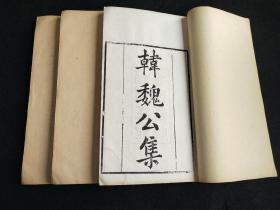 韓魏公集